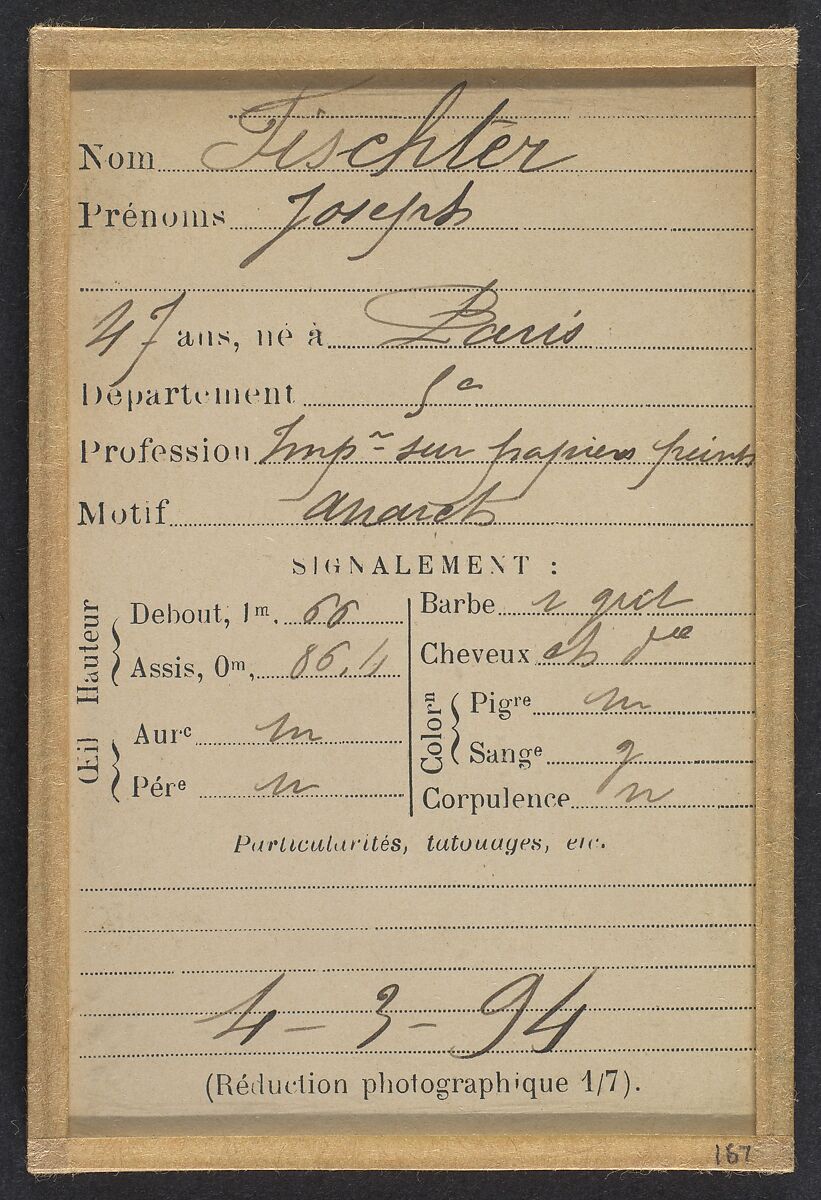 Nom Fischter
Prénoms Joseph
47 ans, né à Paris
Département Sne
Profession Impr sur papiers peints
Motif Anarch
SIGNALEMENT :
Hauteur
Debout, 1m. 66
Assis, 0m, 86,4
Œil
Aurc m
Pére m
Barbe gris
Cheveux ch
Colorn
Pigre m
Sange g
Corpulence m
Particularités, tatouages, etc.
4 - 3 - 94
(Réduction photographique 1/7).
167